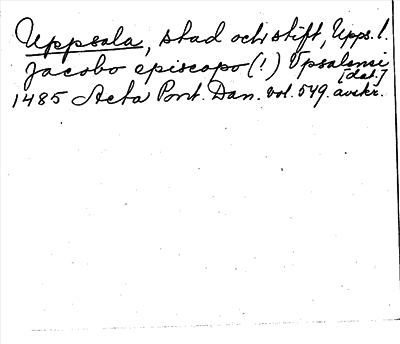 Uppsala, stad och stift, Upps. l.
Jacobo episcopo (!) Vpsalensi
[dat.]
1485 Acta Pont. Dan. vol. 549. avskr.